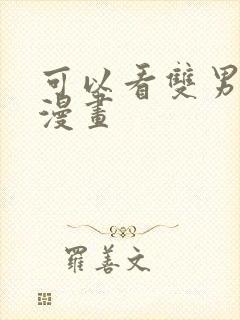 可以看雙男
漫畫
羅善文